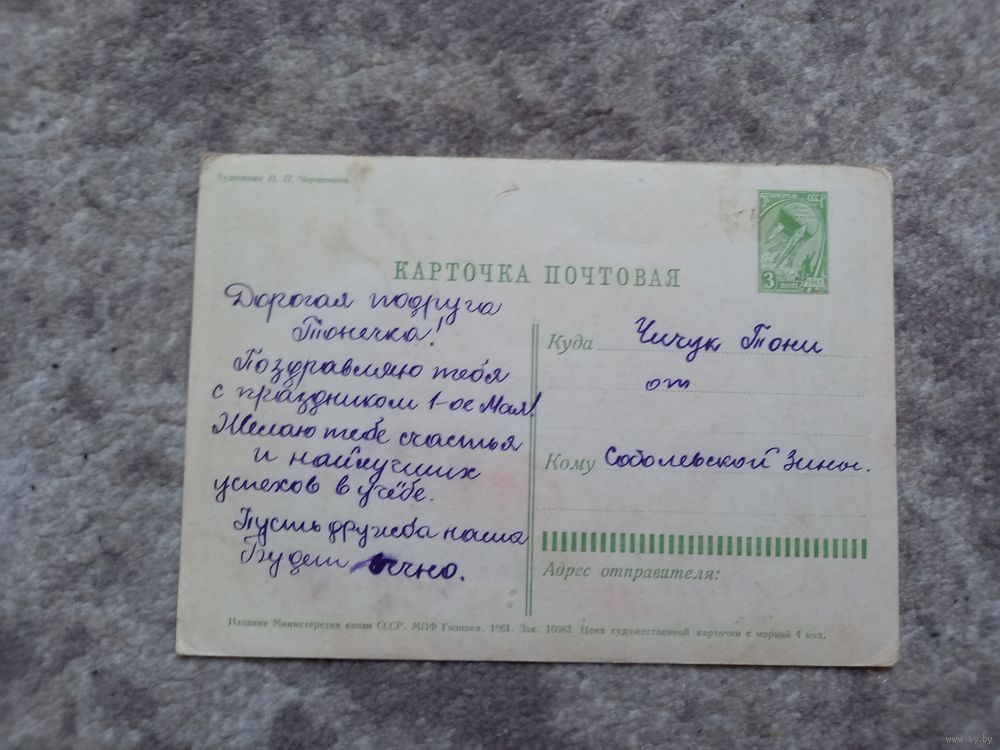 Художник Н. П. Черепенников
ПОЧТА СССР
3 КОП. 1961
КАРТОЧКА ПОЧТОВАЯ
Дорогая подруга
Тонечка!
Поздравляю тебя
с праздником 1-ое Мая!
Желаю тебе счастья
и наилучших
успехов в учёбе.
Пусть дружба наша
Будет вечно.
Куда Чичук Тони
от
Кому Соболевской Зины.
Адрес отправителя:
Издание Министерства связи СССР. МПФ Гознака. 1961. Зак. 16083. Цена художественной карточки с маркой 4 коп.
www.ay.by